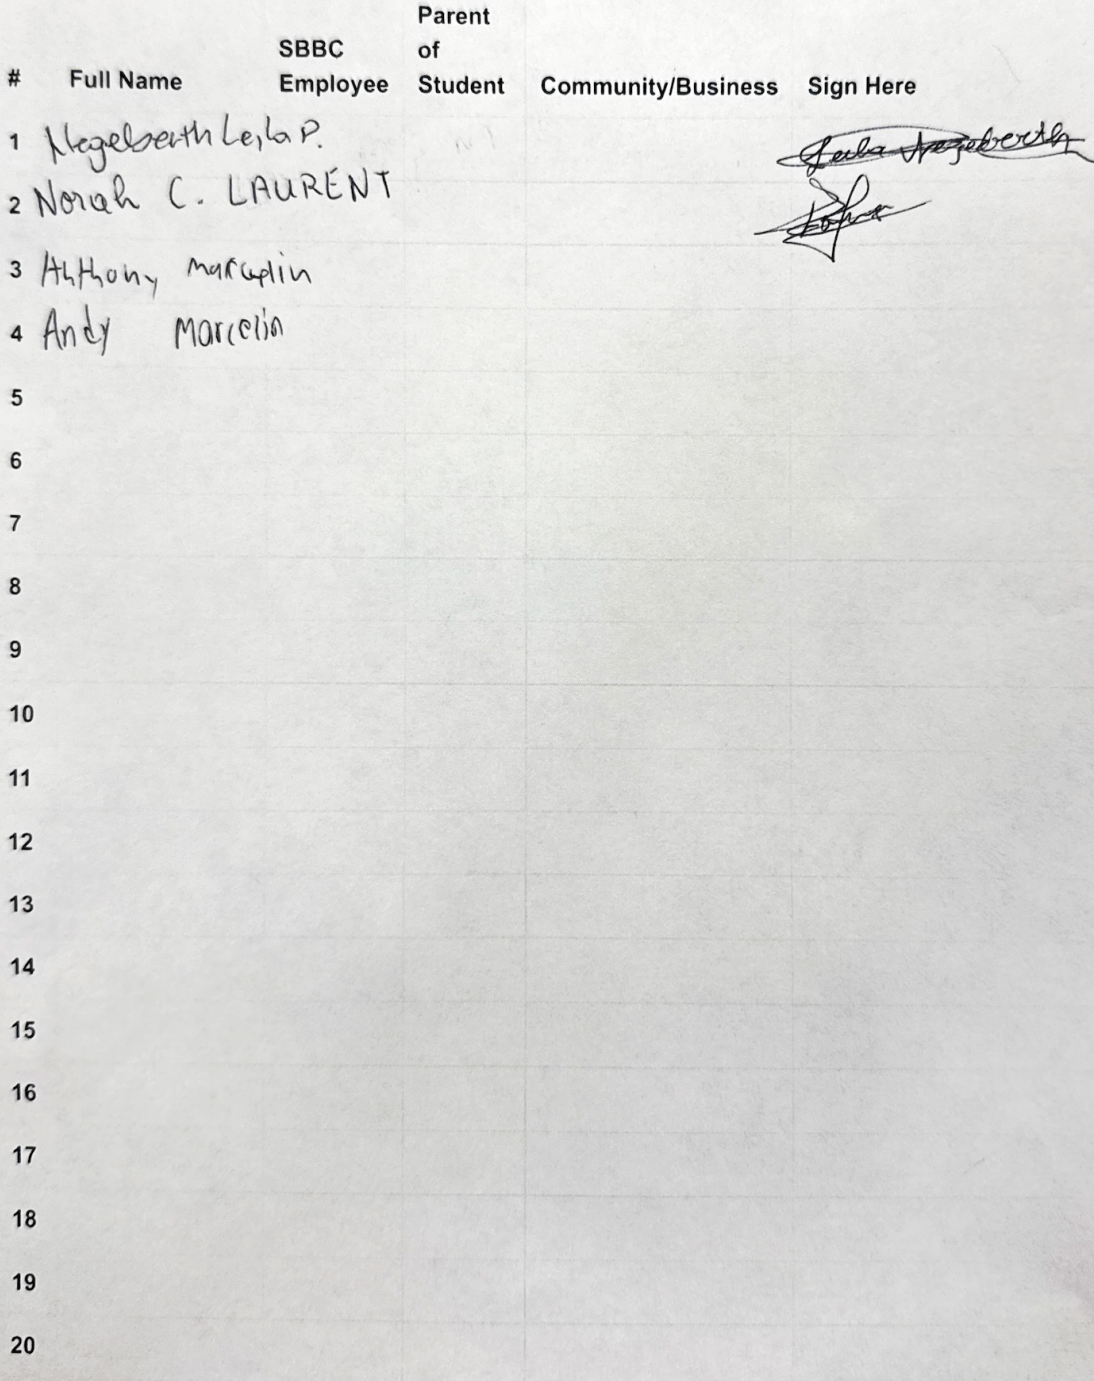 Parent
SBBC of
# Full Name Employee Student Community/Business Sign Here
1 Negelberth Leila P. Leila Negelberth
2 Norah C. LAURENT
3 Anthony Marcelin
4 Andy Marcelin
5
6
7
8
9
10
11
12
13
14
15
16
17
18
19
20